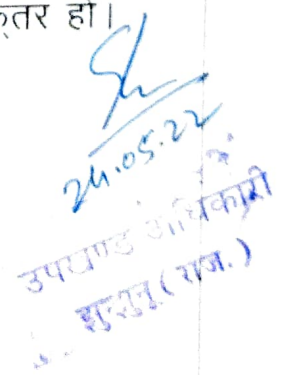 तर हो।
24.05.22
उपखण्ड अधिकारी
झुन्झुनू (राज.)